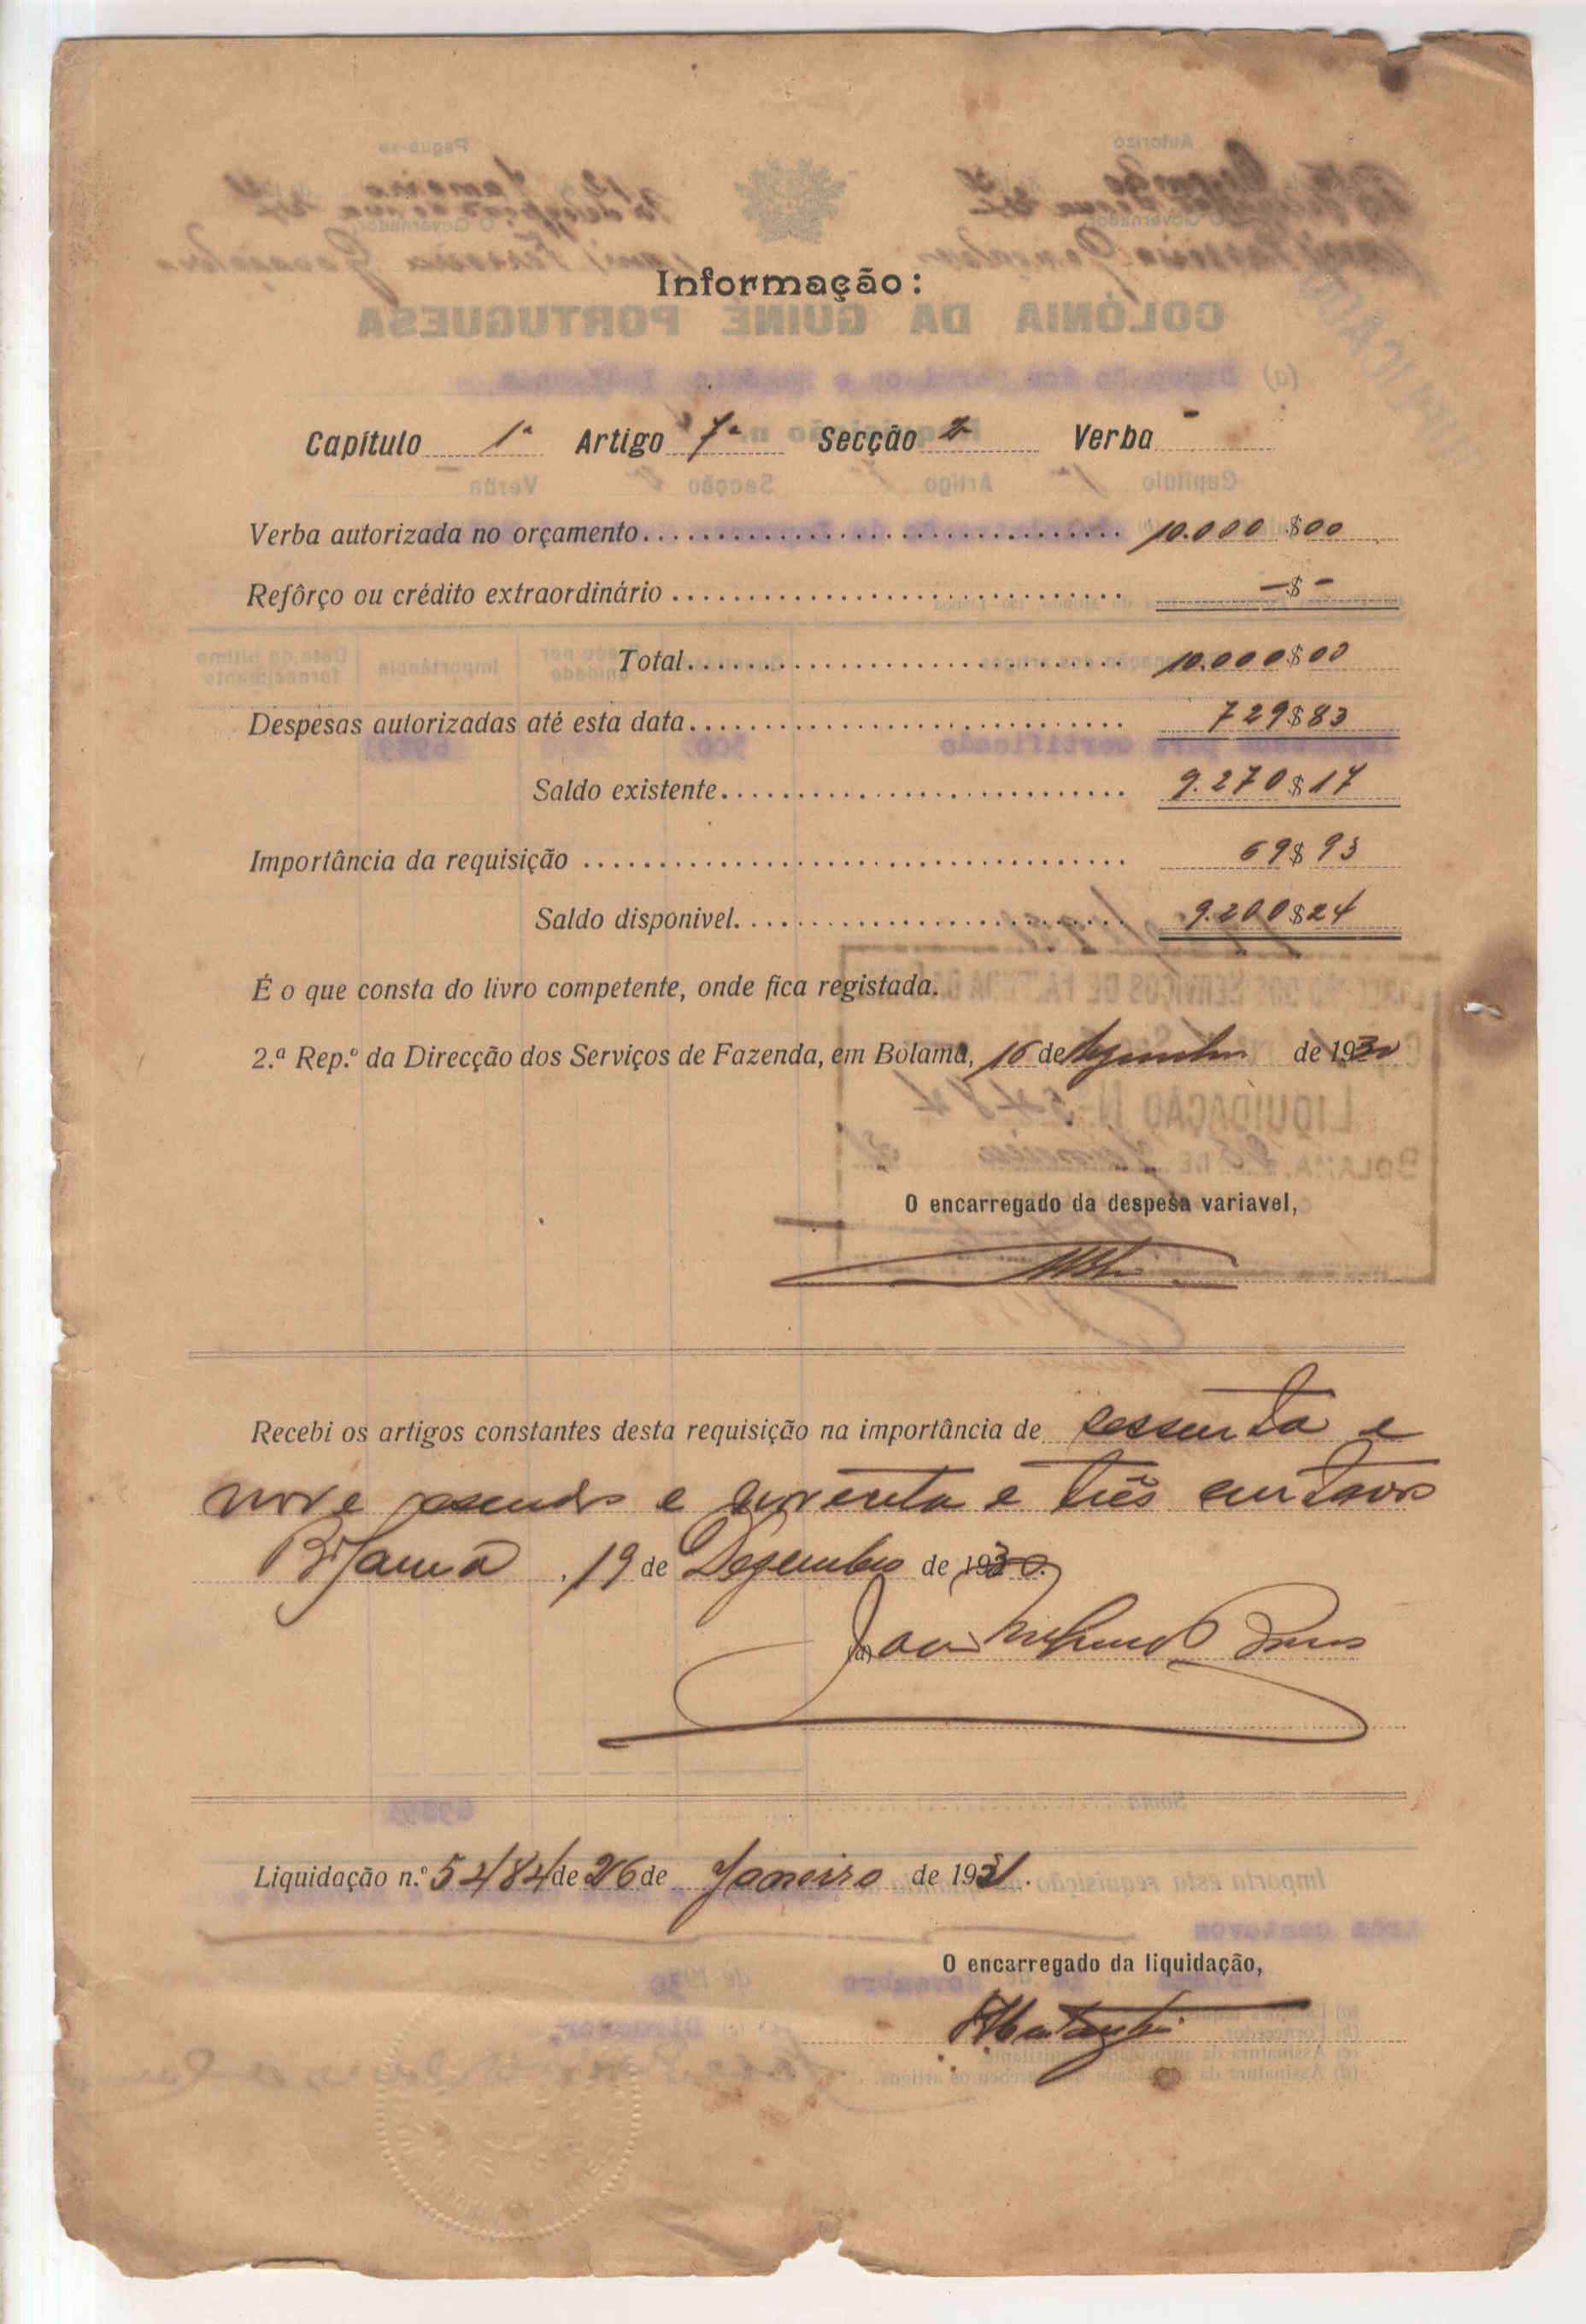 Informação:
Capítulo 1º Artigo 7º Secção 2 Verba -
Verba autorizada no orçamento 10.000$00
Refôrço ou crédito extraordinário -$-
Total 10.000$00
Despesas autorizadas até esta data 729$83
Saldo existente 9.270$17
Importância da requisição 69$93
Saldo disponivel 9.200$24
É o que consta do livro competente, onde fica registada.
2.ª Rep.º da Direcção dos Serviços de Fazenda, em Bolama, 16 de Dezembro de 1930
O encarregado da despesa variavel,
Recebi os artigos constantes desta requisição na importância de sessenta e
nove escudos e noventa e três centavos
Bolama, 19 de Dezembro de 1930.
(d) João
Liquidação n.º 5484 de 26 de Janeiro de 1931.
O encarregado da liquidação,